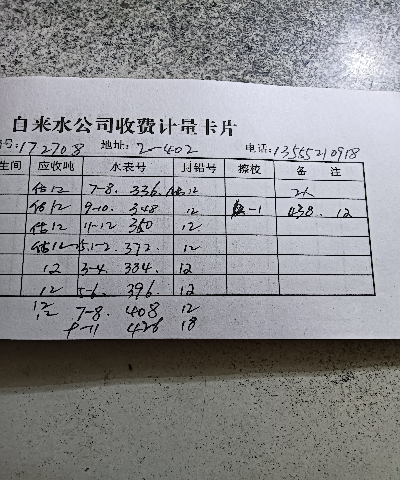 自来水公司收费计量卡片
号:172708 地址:2-402 电话:13555210918
生间 应收吨 水表号 封铅号 擦校 备 注
估12 7-8. 336 12
估12 9-10. 348 12 -1 438. 12
估12 11-12 360 12
估12 25.1-2. 372. 12
12 3-4. 384. 12
12 5-6. 396. 12
12 7-8. 408 12
9-11 426 18